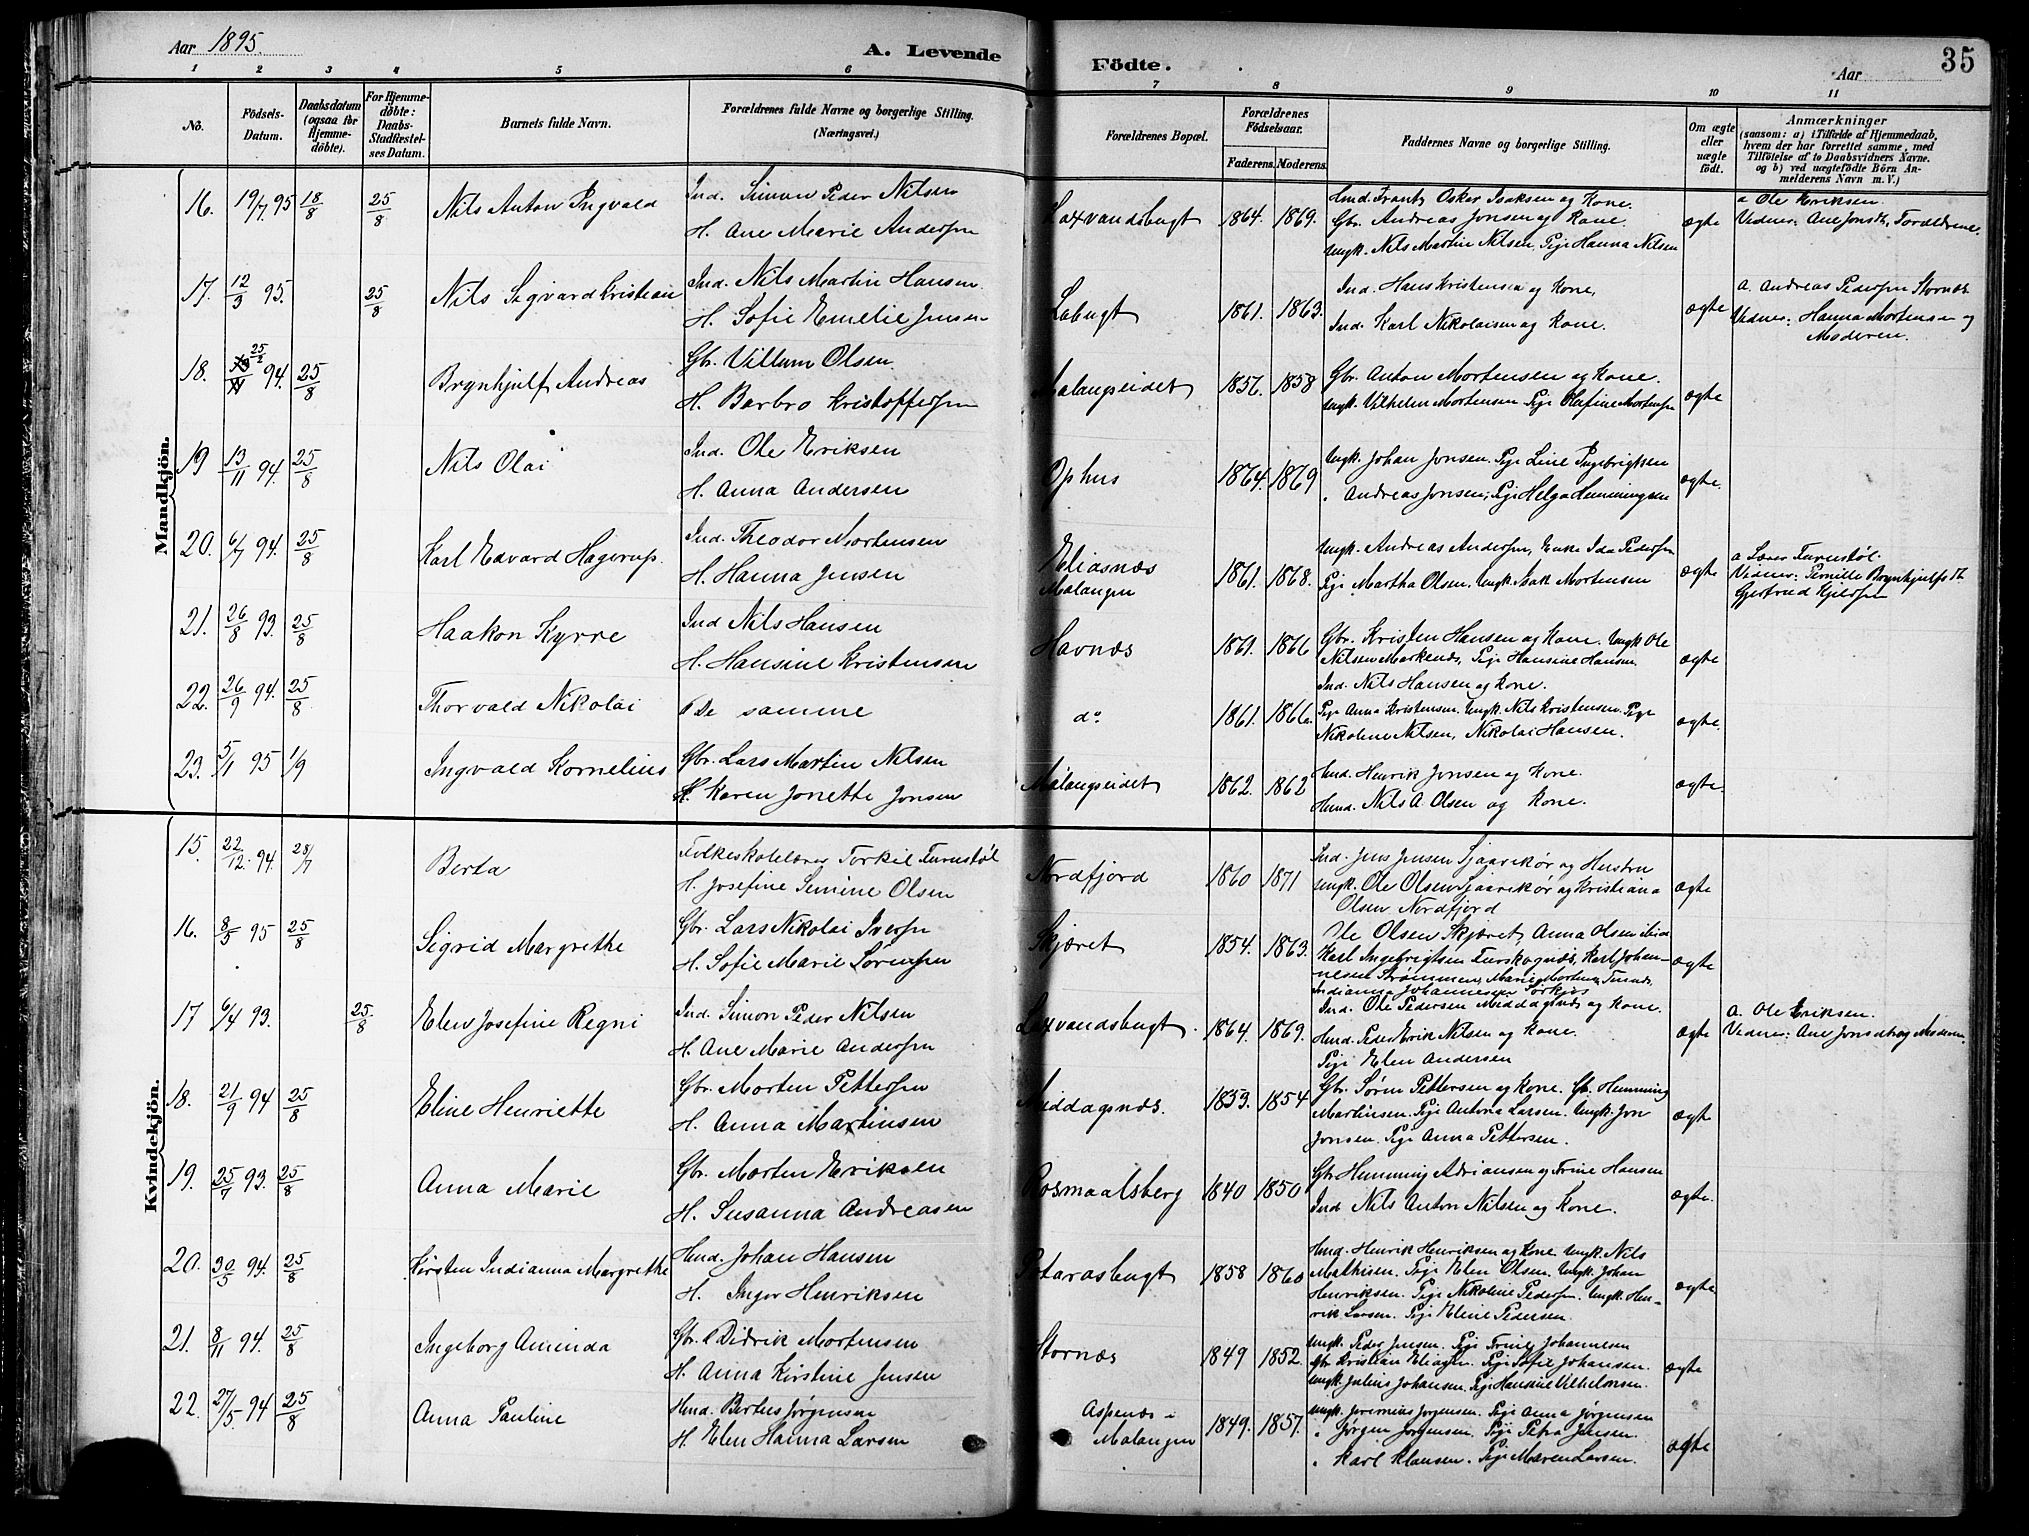 Aar 1895.
A. Levende Födte.
Aar
35
1 2 3 4 5 6 7 8 9 10 11
No.
Födsels-Datum.
Daabsdatum (ogsaa for Hjemme-döbte).
For Hjemme-döbte: Daabs-Stadfæstel-ses Datum.
Barnets fulde Navn.
Forældrenes fulde Navne og borgerlige Stilling. (Næringsvei.)
Forældrenes Bopæl.
Forældrenes Födselsaar.
Faderens. Moderens.
Faddernes Navne og borgerlige Stilling.
Om ægte eller uægte født.
Anmærkninger
(saasom: a) i Tilfælde af Hjemmedaab, hvem der har forrettet samme, med Tilföielse af to Daabsvidners Navne. og b) ved uægtefödte Börn An-melderens Navn m. V.)
Mandkjön.
16. 19/7 95 18/8 25/8 Nils Anton Ingvald
Ind. Simon Peder Nilsen
H. Ane Marie Andersen
Laxvandsbugt 1864. 1869.
Hmd. Frantz Oskar Isaksen og Kone.
Gbr. Andreas Jonsen og Kone.
Ungk. Nils Martin Nilsen, Pige Hanna Nilsen
ægte
a Ole Eriksen.
Vidner: Ane Jonsdt, Forældrene.
17. 12/3 95. 25/8 Nils Sigvard Kristian
Ind. Nils Martin Hansen.
H. Sofie Emelie Jensen
Labugt 1861. 1863.
Ind. Hans Kristensen og Kone,
Ind. Karl Nikolaisen og Kone.
ægte
a. Andreas Pedersen Stornæs
Vidner: Hanna Mortensen og
Moderen.
18. 25/2 94. 25/8 Brynhjulf Andreas
Gbr. Villum Olsen.
H. Barbro Kristoffersen
Malangseidet 1856. 1858
Gbr. Anton Mortensen og Kone.
Ungk. Vilhelm Mortensen Pige Olufine Mortensen
ægte
19 13/11 94. 25/8 Nils Olai
Ind. Ole Eriksen
H. Anna Andersen
Ophus 1864. 1869
Ungk. Johan Jonsen. Pige Line Ingebrigtsen
" Andreas Jonsen; Pige Helga Henningsen
ægte.
20. 6/7 94. 25/8 Karl Edvard Hagerup.
Ind. Theodor Mortensen
H. Hanna Jensen
Eliasnæs
Malangen 1861. 1868.
Ungk. Andreas Andersen, Enke Ida Pedersen
Pige Martha Olsen. Ungk. Isak Mortensen
ægte
a Lærer Furustøl.
Vidner: Pernille Brynhjulfsdt.
Gjertrud Kjeldsen
21. 26/8 93. 25/8 Haakon Kyrre
Ind Nils Hansen
H. Hansine Kristensen
Havnæs 1861. 1866
Gbr. Kristen Hansen og Kone. Ungk Ole
Nilsen Markenæs, Pige Hansine Hansen.
Ind. Nils Hansen og Kone.
ægte
22. 26/9 94. 25/8 Thorvald Nikolai
De samme
do. 1861. 1866.
Pige Anna Kristensen. Ungk. Nils Kristensen. Pige
Nikoline Nilsen, Nikolai Hansen.
ægte.
23. 5/1 95 1/9 Ingvald Kornelius
Gbr. Lars Martin Nilsen
H. Karen Jonette Jonsen
Malangseidet 1862. 1862
Hmd. Henrik Jonsen og Kone.
Hmd. Nils A. Olsen og Kone.
ægte.
Kvindekjön.
15. 22/12. 94. 28/7 Berta
Folkeskolelærer Torkil Furustøl
H. Josefine Simine Olsen
Nordfjord 1860 1871
Ind. Jens Jensen Sjaavikør og Hustru
Ungk. Ole Olsen Sjaavikør og Kristiana
Olsen Nordfjord
ægte
16. 8/5 95 25/8 Sigrid Margrethe
Gbr. Lars Nikolai Iversen
H. Sofie Marie Sørensen
Skjæret 1854. 1863.
Ole Olsen Skjæret, Anna Olsen
Karl Ingebrigtsen Furskognæs, Karl Johan-
nesen Strømmen, Marie Mortensen
Indianna Johannesen
ægte
17 6/4 93. 25/8 Elen Josefine Regni
Ind. Simon Peder Nilsen
H. Ane Marie Andersen
Laxvandsbugt. 1864. 1869.
Ind. Ole Pedersen Middagsnæs og Kone.
Hmd. Peder Erik Nilsen og Kone.
Pige Elen Andersen
ægte
a. Ole Eriksen.
Vidner: Ane Jonsdt og Moderen.
18. 21/9 94 25/8 Eline Henriette
Gbr. Morten Pettersen
H. Anna Martinsen
Middagsnæs. 1853. 1854
Gbr. Søren Pettersen og Kone. Gbr. Hemming
Martinsen. Pige Antona Larsen. Ungk. Jon
Jonsen. Pige Anna Pettersen.
ægte
19. 25/7 93. 25/8 Anna Marie
Gbr. Morten Eriksen
H. Susanna Andreasen
Rosmaalsberg 1840 1850
Gbr Hemming Adriansen og Trine Hansen
Ind. Nils Anton Nilsen og Kone.
ægte.
20. 30/5 94. 25/8 Kirsten Indianna Margrethe
Hmd. Johan Hansen
H. Inger Henriksen
1858 1860
Hmd. Henrik Henriksen og Kone. Ungk. Nils
Mathisen. Pige Elen Olsen. Ungk. Johan
Henriksen. Pige Nikoline Pedersen. Ungk. Hen-
rik Larsen. Pige Eline Pedersen.
ægte
21. 8/11 94. 25/8 Ingeborg Aminda
Gbr. Didrik Mortensen
H. Anna Kirstine Jensen
Stornæs 1849 1852.
Ungk. Peder Jensen. Pige Trine Johannesen
Gbr. Kristian Eliassen. Pige Sofie Johansen.
Ungk. Julius Johansen. Pige Hansine Vilhelmsen.
ægte
22. 27/5 94 25/8 Anna Pauline
Hmd. Bertus Jørgensen
H. Elen Hanna Larsen
Aspenæs i
Malangen 1849. 1857.
Ungk. Jeremias Jørgensen. Pige Anna Jørgensen
" Jørgen Jørgensen. Pige Petra Jensen.
" Karl Klausen. Pige Maren Larsen.
ægte